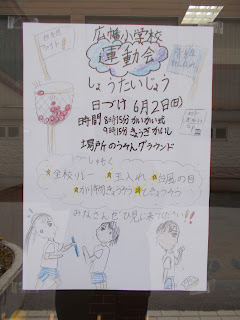 広幡小学校
運動会
しょうたいじょう
日づけ 6月2日(日)
時間 8時15分 かいかい式
9時15分 きょうぎかいし
場所 のうそんグラウンド
しゅもく
★全校リレー ★玉入れ ★台風の目
★かり物きょうそう ★ときょうそう
みなさんぜひ見に来てください!!